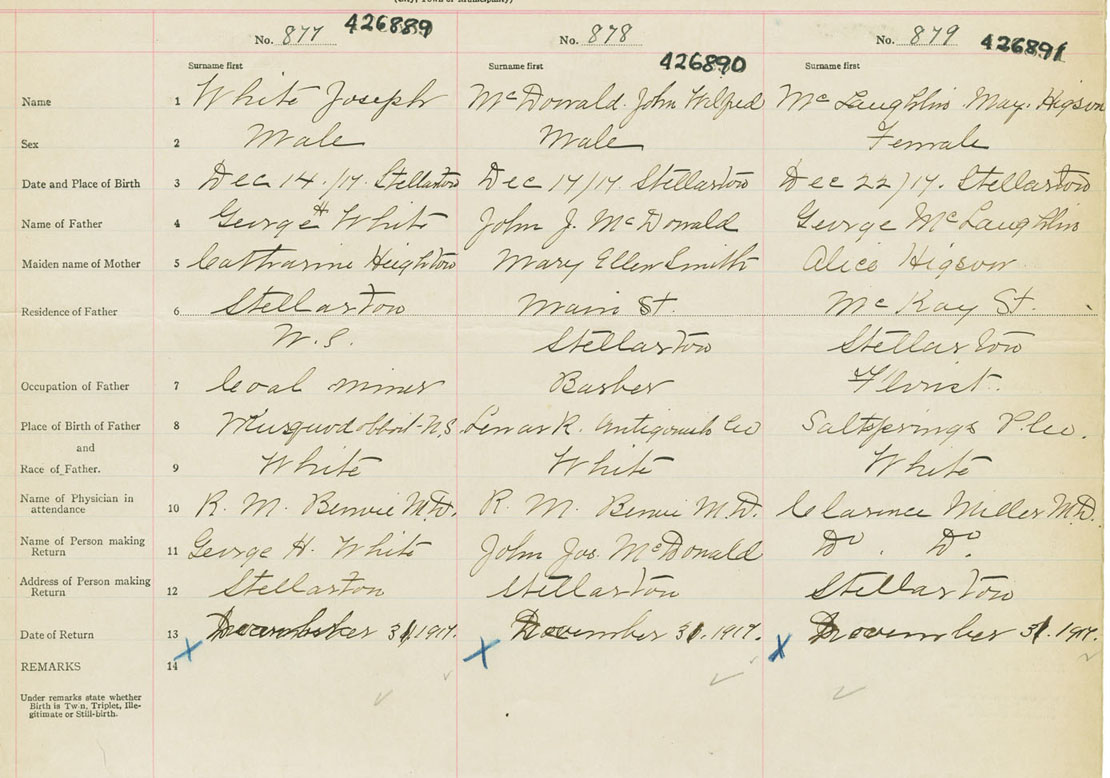 (City, Town or Municipality)
No. 877 426889 No. 878 426890 No. 879 426891
Surname first Surname first Surname first
Name 1 White Joseph McDonald John Wilfred McLaughlin May Higson
Sex 2 Male Male Female
Date and Place of Birth 3 Dec 14/17. Stellarton Dec 17/17 Stellarton Dec 22/17. Stellarton
Name of Father 4 George H White John J. McDonald George McLaughlin
Maiden name of Mother 5 Catharine Heighton Mary Ellen Smith Alice Higson
Residence of Father 6 Stellarton Main St. McKay St.
N.S. Stellarton Stellarton
Occupation of Father 7 Coal miner Barber Florist.
Place of Birth of Father 8 Musquodoboit N.S. R. Antigonish Co Saltsprings P. Co.
and
Race of Father. 9 White White White
Name of Physician in
attendance 10 R. M. Benvie M.D. R. M. Benvie M.D. Clarence Miller M.D.
Name of Person making
Return 11 George H. White John Jos. McDonald Do. Do.
Address of Person making
Return 12 Stellarton Stellarton Stellarton
Date of Return 13 31.1917. 31.1917. 31.1917.
REMARKS 14
Under remarks state whether
Birth is Twin, Triplet, Ille-
gitimate or Still-birth.